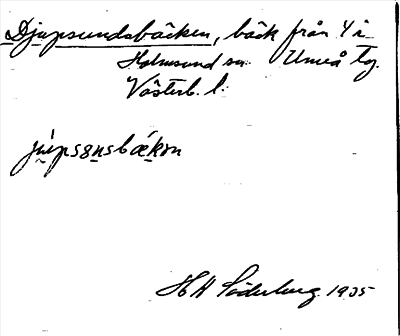 Djupsundsbäcken, bäck från 4 i
Holmsund sn. Umeå tg.
Västerb. l.
júpsₔnsbǽkən
H H Söderberg 1935